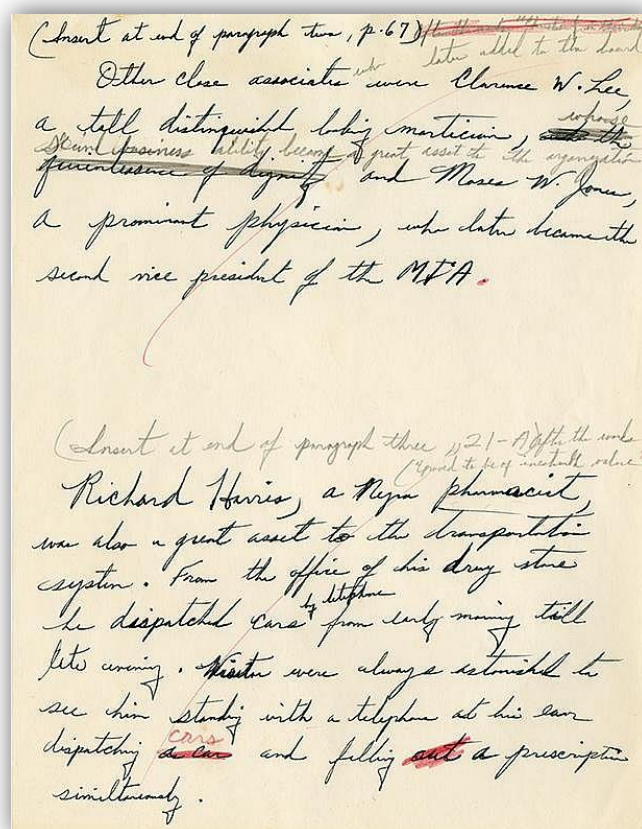 (Insert at end of paragraph two, p. 67)
who later added to the board
Other close associates were Clarence W. Lee,
a tall distinguished looking mortician, whose
sound business ability became a great asset to the organization
quintessence of dignity and Moses W. Jones,
a prominent physician, who later became the
second vice president of the MIA.
(Insert at end of paragraph three, 21-A after the words
"proved to be of inestimable value"
Richard Harris, a Negro pharmacist,
was also a great asset to the transportation
system. From the office of his drug store
by telephone
he dispatched cars from early morning till
late evening. Visitors were always astonished to
see him standing with a telephone at his ear
cars
dispatching a car and filling out a prescription
simultaneously.